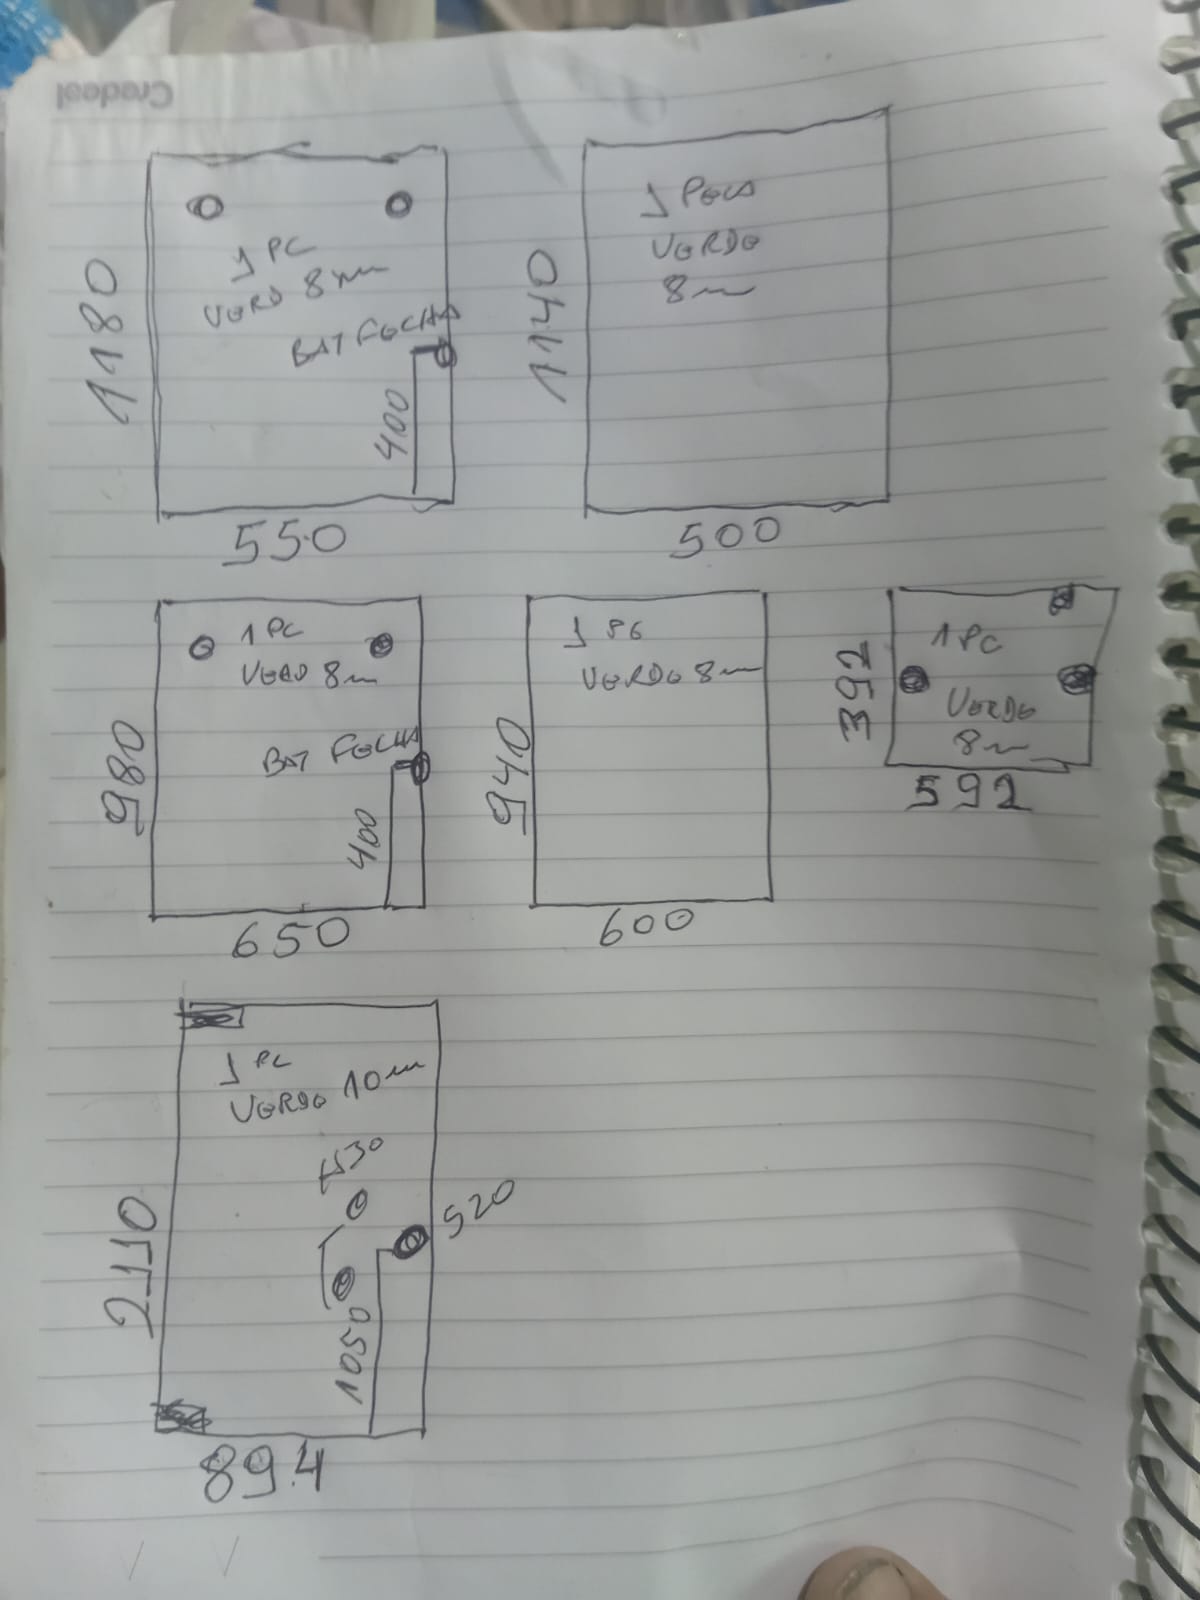 Credeal
1180
1 PC
VERD 8mm
BAT FECHA
400
550
1140
1 PECA
VERDE
8m
500
980
1 PC
VERD 8m
BAT FECHA
400
650
940
VERDE 8m
600
392
1 PC
VERDE
8m
592
2110
1 PC
VERDE 10m
520
1050
894